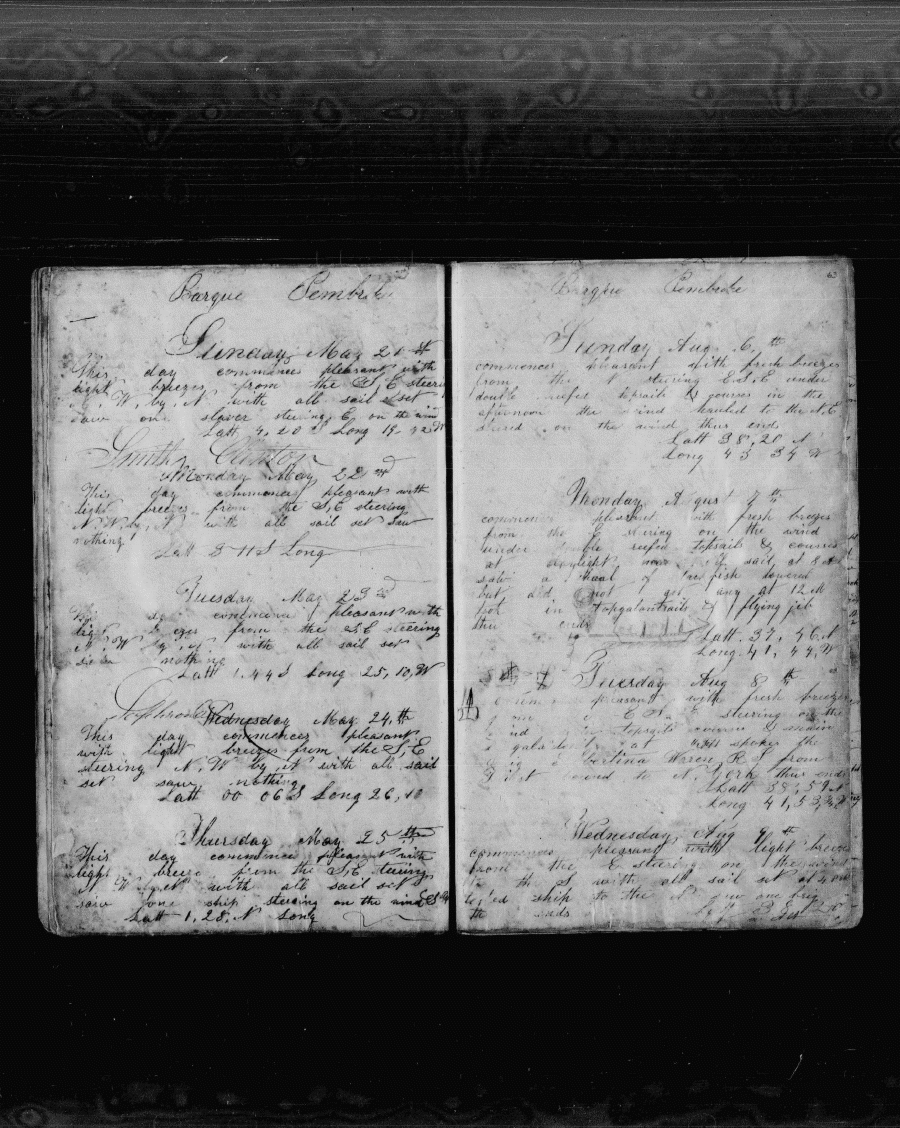 Barque Pembroke
Sunday May 21 st
This day commences pleasant with
light breezes from the S, E steering
N, W, by, N with all sail set
saw one slaver steering, E, on the wind
Latt 4, 20 S Long 19, 32 W
Smith, Clinton
Monday May, 22 nd
This day commences pleasant with
light breezes from the S, E steering
N, W by, N with all sail set saw
nothing
Latt 3 11 S Long
Tuesday May 23 rd
This day commences pleasant with
light breezes from the S, E steering
N, W, by, N, with all sail set
nothing
Latt 1, 44 S Long 25, 10, W
Wednesday May 24, th
This day commences pleasant
with light breezes from the S, E
steering N, W by, N with all sail
set saw nothing
Latt 00 06 S Long 26, 10
Thursday May 25 th
This day commences pleasant with
light breeze from the S, E steering
N W by N with all sail set
saw one ship steering on the wind
Latt 1, 28, N Long
Barque Pembroke
Sunday Aug 6, th
commences pleasant with fresh breezes
from the N steering E, S, E under
double reefed topsails & courses in the
afternoon the wind hauled to the N, E
on the wind thus ends
Latt 38, 20 N
Long 43 34 W
Monday August 7 th
commences pleasant with fresh breezes
from the E steering on the wind
under double reefed topsails & courses
at daylight sail at 8 a
saw a shoal of fish lowered
but did not get any at 12 M
put in topgalantsails & flying jib
thus ends
Latt 37, 46, N
Long, 41, 44, W
Tuesday Aug 8 th
pleasant with fresh breezes
E steering on the
topsails courses & main
spoke the
from
bound to N, York thus ends
Latt 38, 59 N
Long 41, 53, W
Wednesday, Aug 9 th
commences pleasant with light breeze
from the E steering on the wind
to the S with all sail set at 4 PM
tacked ship to the N saw one brig
ends